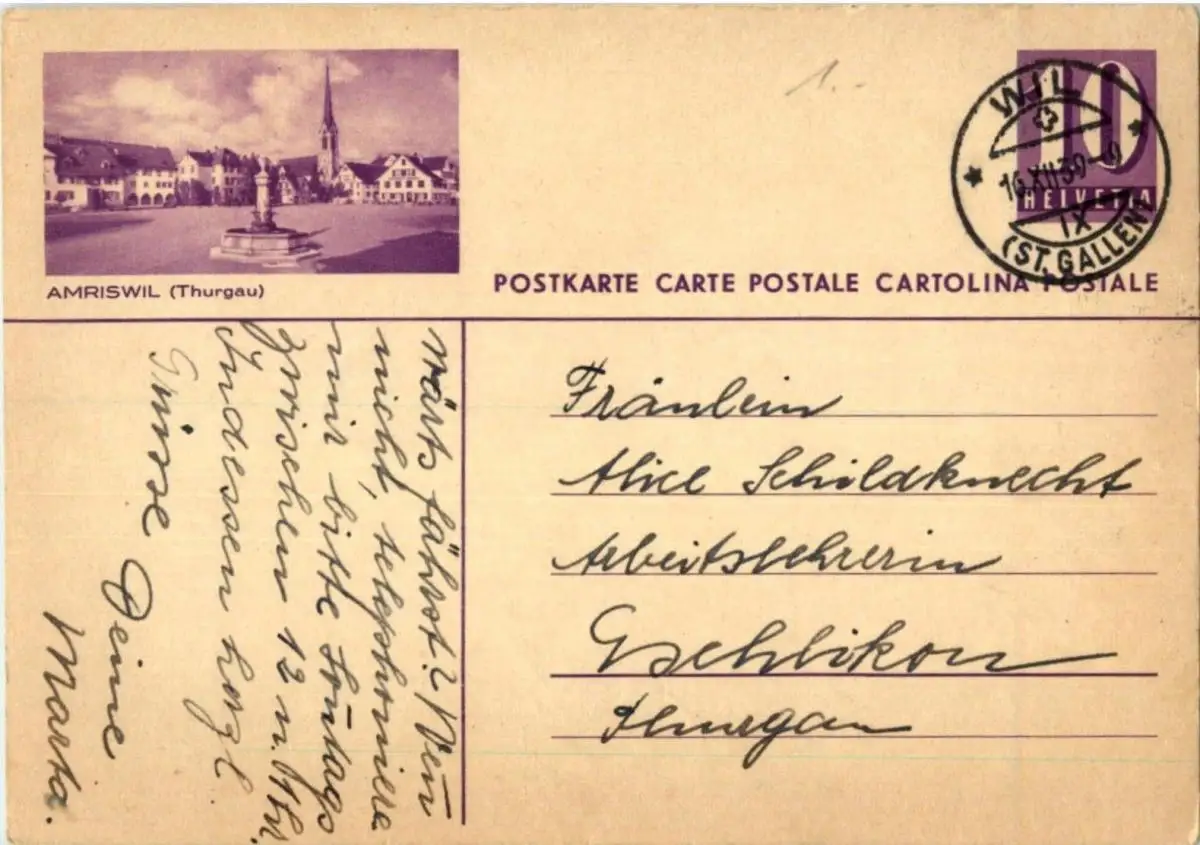 1.-
10
HELVETIA
WIL
16.XII.39-9
IX
(ST. GALLEN)
AMRISWIL (Thurgau)
POSTKARTE CARTE POSTALE CARTOLINA POSTALE
wärts fährst? Wen̄
nicht, telephoniere
mir bitte Son̄tags
zwischen 12 u. 1 Uhr.
Indessen herzl.
Grüsse Deine
Marta.
Fräulein
Alice Schildknecht
Arbeitslehrerin
Eschlikon
Thurgau